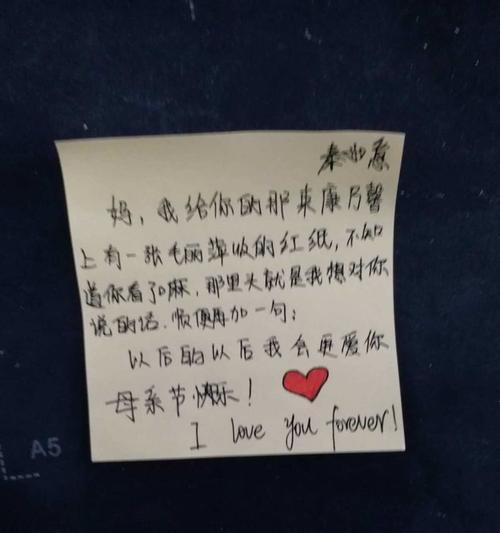 妈，我给你的那束康乃馨
上有一张毛丽萍做的红纸，不知
道你看了吗麻，那里头就是我想对你
说的话，顺便再加一句：
以后的以后我会更爱你
母亲节快乐！
I love you forever!
A5